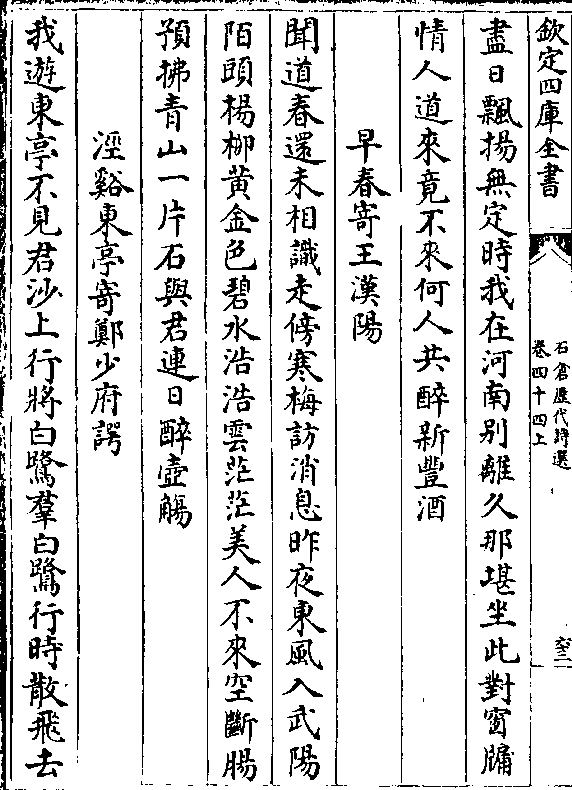 欽定四庫全書
石倉歷代詩選
卷四十四上
盡日飄揚無定時我在河南别離久那堪坐此對窗牖
情人道來竟不來何人共醉新豐酒
早春寄王漢陽
聞道春還未相識走傍寒梅訪消息昨夜東風入武陽
陌頭楊柳黄金色碧水浩浩雲茫茫美人不來空斷腸
預拂青山一片石與君連日醉壺觴
涇谿東亭寄鄭少府諤
我遊東亭不見君沙上行將白鷺羣白鷺行時散飛去